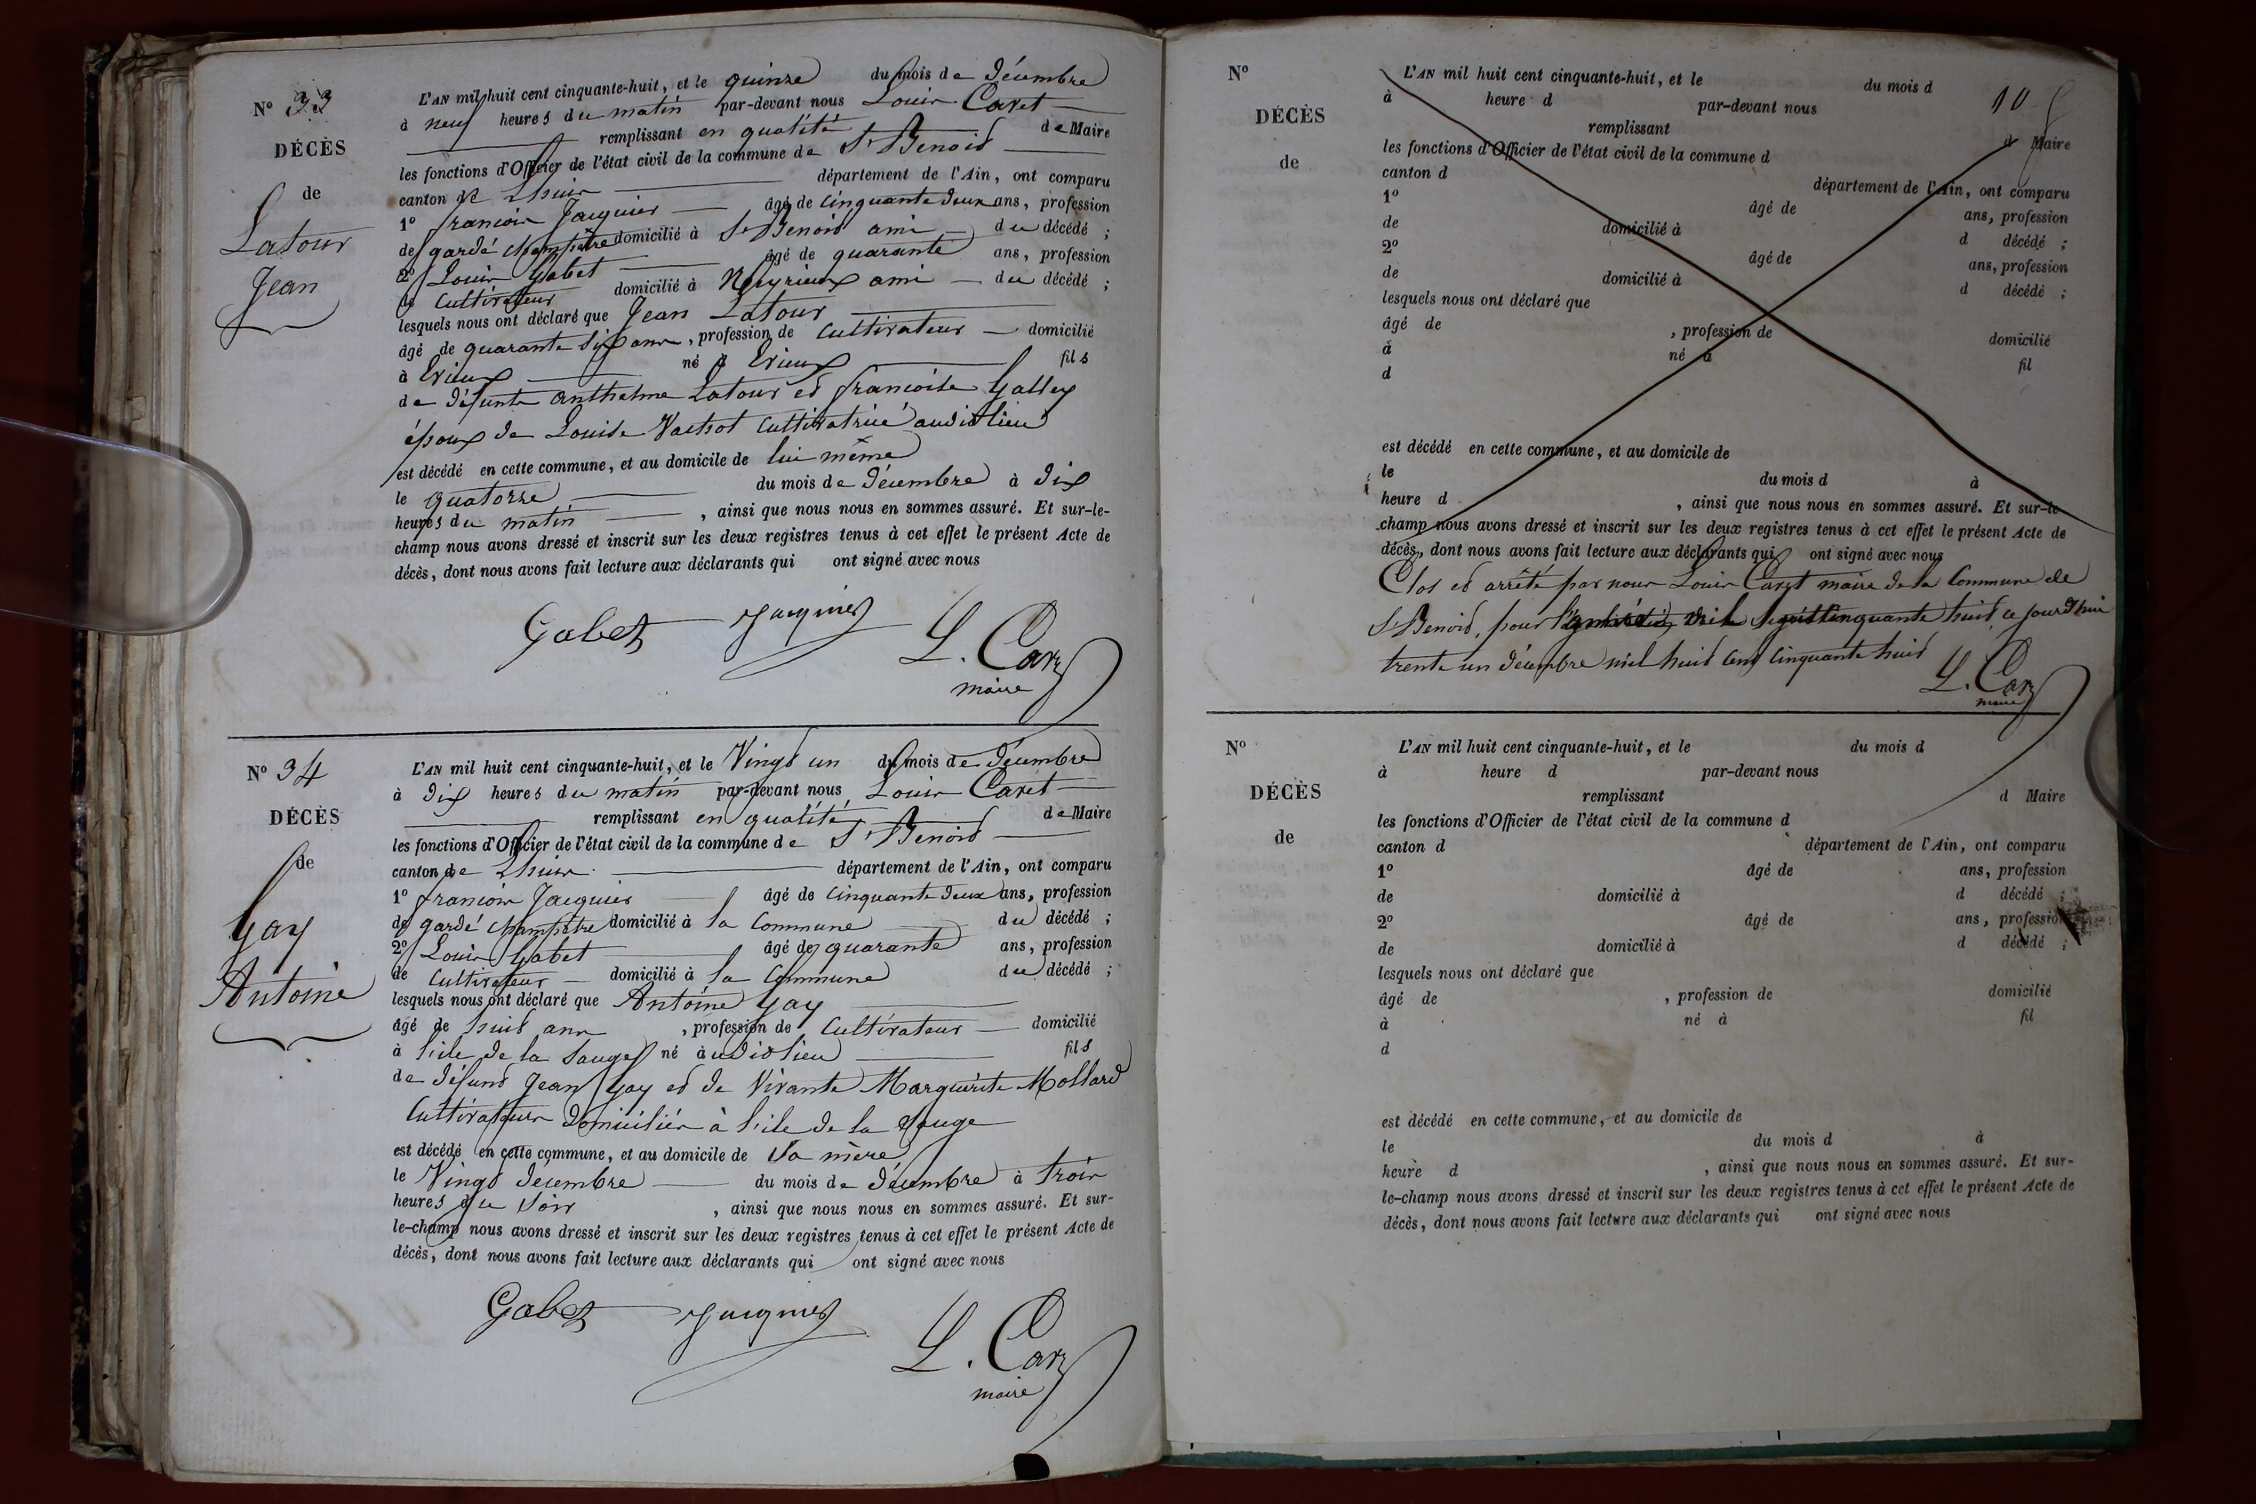 N° 33
DÉCÈS
de
Latour
Jean
L'AN mil huit cent cinquante-huit, et le quinze du mois de décembre
à neuf heures du matin par-devant nous Louis Caret
remplissant en qualité de Maire
les fonctions d'Officier de l'état civil de la commune de St Benoid
canton de Lhuis département de l'Ain, ont comparu
1° francois Jacquier âgé de cinquante deux ans, profession
de garde champêtre domicilié à St Benoid ami du décédé ;
2° Louis Gabet âgé de quarante ans, profession
de cultivateur domicilié à ami du décédé ;
lesquels nous ont déclaré que Jean Latour
âgé de quarante six ans, profession de cultivateur domicilié
à Evieux né à Evieux fils
de défunts anthelme Latour ed francoise Galley
époux de Louise Vachot cultivatrice audit lieu
est décédé en cette commune, et au domicile de lui même
le quatorze du mois de décembre à dix
heures du matin, ainsi que nous nous en sommes assuré. Et sur-le-
champ nous avons dressé et inscrit sur les deux registres tenus à cet effet le présent Acte de
décès, dont nous avons fait lecture aux déclarants qui ont signé avec nous
Gabet Jacquier L. Car
maire
N° 34
DÉCÈS
de
Gay
Antoine
L'AN mil huit cent cinquante-huit, et le Vingd un du mois de décembre
à dix heures du matin par-devant nous Louis Caret
remplissant en qualité de Maire
les fonctions d'Officier de l'état civil de la commune de St Benoid
canton de Lhuis département de l'Ain, ont comparu
1° francois Jacquier âgé de cinquante deux ans, profession
de garde champêtre domicilié à la commune du décédé ;
2° Louis Gabet âgé de quarante ans, profession
de cultivateur domicilié à la commune du décédé ;
lesquels nous ont déclaré que Antoine Gay
âgé de huid ans, profession de cultivateur domicilié
à l'ile de la Sauge né audid lieu fils
de défund Jean Gay ed de Vivante Marguérite Mollard
cultivateurs domiciliés à l'ile de la Sauge
est décédé en cette commune, et au domicile de sa mère
le Vingd décembre du mois de décembre à trois
heures du soir, ainsi que nous nous en sommes assuré. Et sur-
le-champ nous avons dressé et inscrit sur les deux registres tenus à cet effet le présent Acte de
décès, dont nous avons fait lecture aux déclarants qui ont signé avec nous
Gabet Jacquier L. Car
maire
N°
DÉCÈS
de
10
L'AN mil huit cent cinquante-huit, et le du mois d
à heure d par-devant nous
remplissant d Maire
les fonctions d'Officier de l'état civil de la commune d
canton d département de l'Ain, ont comparu
1° âgé de ans, profession
de domicilié à d décédé ;
2° âgé de ans, profession
de domicilié à d décédé ;
lesquels nous ont déclaré que
âgé de , profession de domicilié
à né à fil
d
est décédé en cette commune, et au domicile de
le du mois d à
heure d , ainsi que nous nous en sommes assuré. Et sur-le-
champ nous avons dressé et inscrit sur les deux registres tenus à cet effet le présent Acte de
décès, dont nous avons fait lecture aux déclarants qui ont signé avec nous
Clos ed arrêté par nous Louis Caret maire de la Commune de
St Benoid, pour cinquante huid, ce jourd'hui
trente un décembre mil huid cent cinquante huid
L. Car
maire
N°
DÉCÈS
de
L'AN mil huit cent cinquante-huit, et le du mois d
à heure d par-devant nous
remplissant d Maire
les fonctions d'Officier de l'état civil de la commune d
canton d département de l'Ain, ont comparu
1° âgé de ans, profession
de domicilié à d décédé ;
2° âgé de ans, profession
de domicilié à d décédé ;
lesquels nous ont déclaré que
âgé de , profession de domicilié
à né à fil
d
est décédé en cette commune, et au domicile de
le du mois d à
heure d , ainsi que nous nous en sommes assuré. Et sur-
le-champ nous avons dressé et inscrit sur les deux registres tenus à cet effet le présent Acte de
décès, dont nous avons fait lecture aux déclarants qui ont signé avec nous